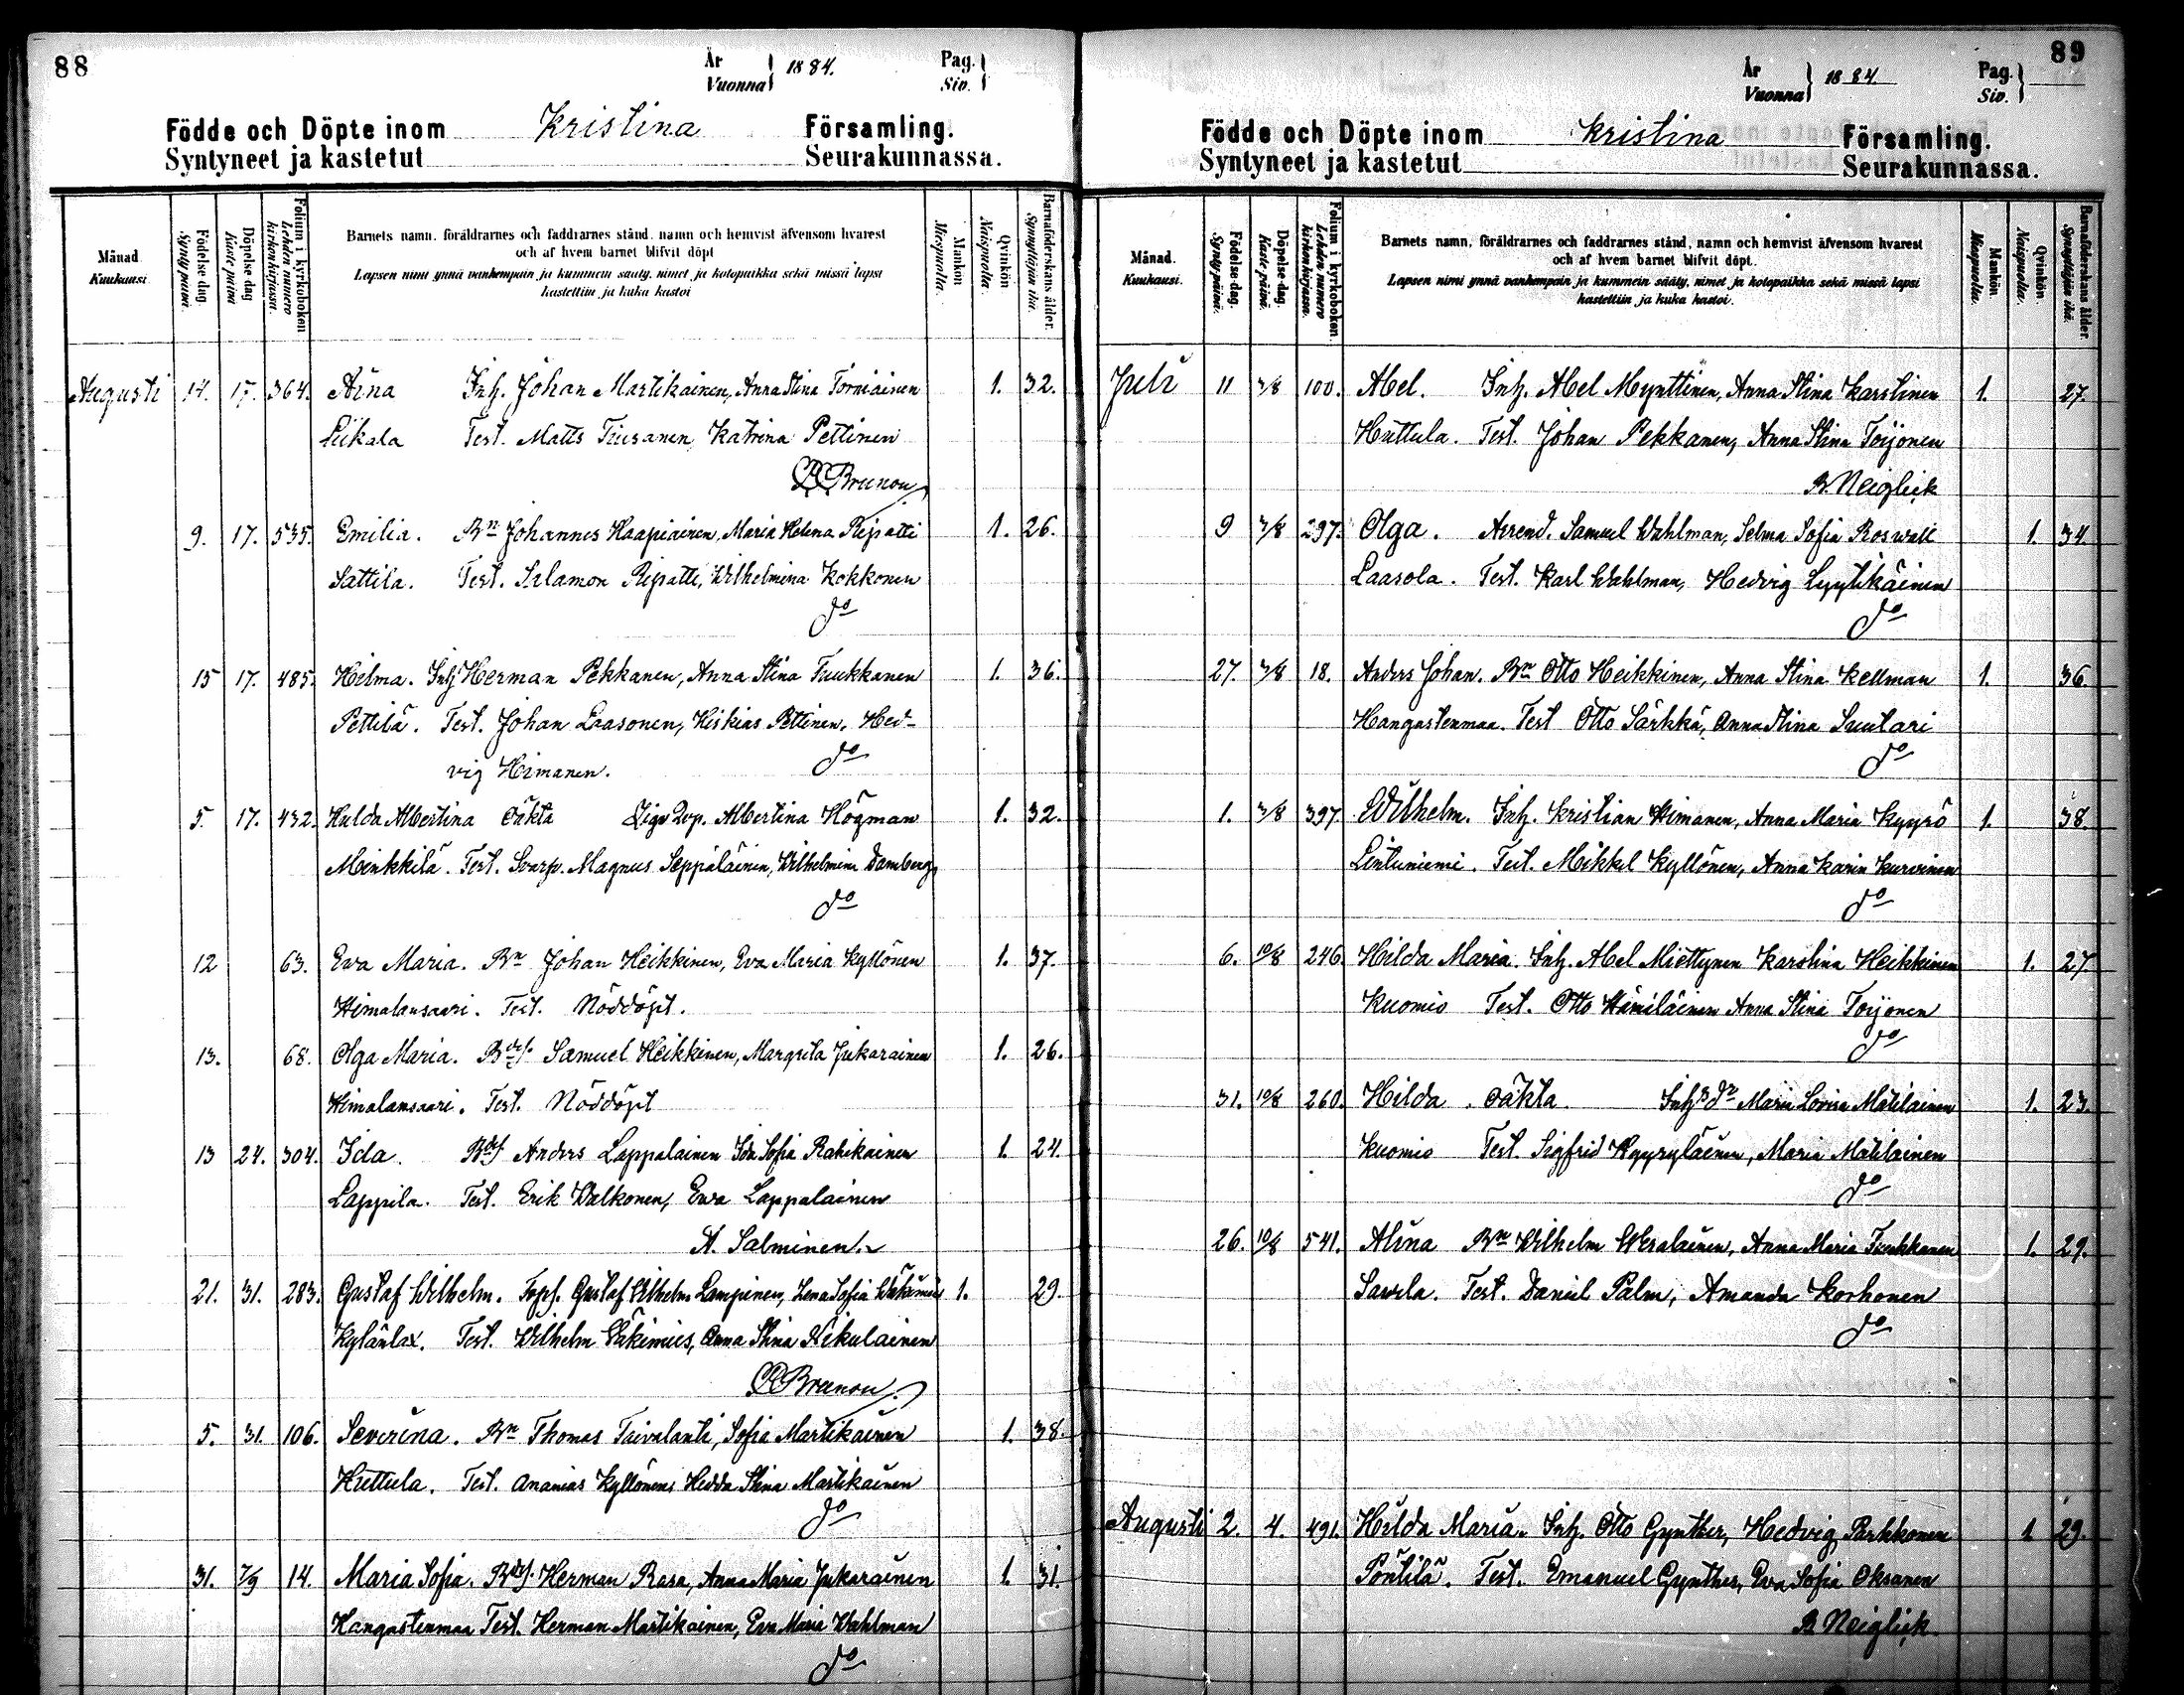 88
År
Vuonna
1884.
Pag.
Siv.
Födde och Döpte inom Kristina Församling.
Syntyneet ja kastetut Seurakunnassa.
Månad
Kuukausi
Födelse dag
Synty päinä.
Döpelse dag
Kaste päinä
Folium i kyrkoboken
Lehden numero kirkonkirjassa.
Barnets namn, föräldrarnes och faddrarnes stånd, namn och hemvist äfvensom hvarest
och af hvem barnet blifvit döpt
Lapsen nimi ynnä vanhempain ja kummein sääty, nimet ja kotopaikka sekä missä lapsi
kastettiin ja kuka kastoi
Mankön
Miespuolta.
Qvinkön
Naispuolta.
Barnaföderskans ålder.
Synnyttäjän ikä.
Augusti 14. 17. 364. Aina Inh. Johan Martikainen, Anna Stina Torniainen 1. 32.
Liikala Test. Matts Tiusanen, Katrina Pettinen
Brunou
9. 17. 535. Emilia. Bn Johannes Haapiainen, Maria Helena Ripatti 1. 26.
Sattila. Test. Salamon Ripatti, Wilhelmina Kokkonen
do
15 17. 485. Hilma. Inh Herman Pekkanen, Anna Stina Tuukkanen 1. 36.
Pettilä. Test. Johan Laasonen, Hiskias Pettinen, Hed-
vig Himanen.
do
5. 17. 432. Hulda Albertina Oäkta Albertina Högman 1. 32.
Minkkilä. Test. Svarp. Magnus Seppäläinen, Wilhelmina Damberg
do
12 63. Ewa Maria. Bn Johan Heikkinen, Eva Maria Kyllönen 1. 37.
Himalansaari. Test. Nöddöpt.
13. 68. Olga Maria. Bds. Samuel Heikkinen, Margreta Jukarainen 1. 26.
Himalansaari. Test. Nöddöpt
13 24. 304. Ida. Bds Anders Lappalainen Ida Sofia Rahikainen 1. 24.
Lappila. Test. Erik Walkonen, Ewa Lappalainen
A. Salminen.
21. 31. 283. Gustaf Wilhelm. Torps. Gustaf Wilhelm Lampinen, Lena Sofia Wäkimies 1. 29.
Kylänlax. Test. Wilhelm Väkimies, Anna Stina Nikulainen
Brunou.
5. 31. 106. Severina. Bn Thomas Taivalanti, Sofia Martikainen 1. 38.
Huttula. Test. Ananias Kyllönen, Hedda Stina Martikainen
do
31. 7/9 14. Maria Sofia. Bds. Herman Rasa, Anna Maria Jukarainen 1. 31.
Hangastenmaa Test. Herman Martikainen, Eva Maria Wahlman
do
89
År
Vuonna
1884
Pag.
Siv.
Födde och Döpte inom Kristina Församling.
Syntyneet ja kastetut Seurakunnassa.
Månad.
Kuukausi.
Födelse-dag.
Synty-päinä.
Döpelse-dag.
Kaste-päinä.
Folium i kyrkoboken.
Lehden numero kirkonkirjassa.
Barnets namn, föräldrarnes och faddrarnes stånd, namn och hemvist äfvensom hvarest
och af hvem barnet blifvit döpt.
Lapsen nimi ynnä vanhempain ja kummein sääty, nimet ja kotopaikka sekä missä lapsi
kastettiin ja kuka kastoi.
Mankön
Miespuolta.
Qvinkön
Naispuolta.
Barnaföderskans ålder.
Synnyttäjän ikä.
Juli 11 3/8 100. Abel. Inh. Abel Mynttinen, Anna Stina Karstinen 1. 27.
Huttula. Test. Johan Pekkanen, Anna Stina Toijonen
B. Neiglick
9 3/8 297. Olga. Arrend. Samuel Wahlman, Selma Sofia Roswall 1. 34.
Laasola. Test. Karl Wahlman, Hedvig Lyytikäinen
do
27. 3/8 18. Anders Johan. Bn Otto Heikkinen, Anna Stina Kellman 1. 36.
Hangastenmaa. Test Otto Särkkä, Anna Stina Suutari
do
1. 3/8 397. Wilhelm. Inh. Kristian Himanen, Anna Maria Kyyrö 1. 38.
Lintuniemi. Test. Mikkel Kyllönen, Anna Karin Kurvinen
do
6. 10/8 246 Hilda Maria. Inh. Abel Miettynen Karolina Heikkinen 1. 27
Kuomio Test. Otto Hämäläinen Anna Stina Toijonen
do
31. 10/8 260. Hilda. Oäkta. Inhs dr Maria Lovisa Mätiläinen 1. 23.
Kuomio Test. Sigfrid Kyyryläinen, Maria Mätiläinen
do
26. 10/8 541. Alina Bn Wilhelm Weralainen, Anna Maria Tuukkanen 1. 29.
Sawela. Test. Daniel Palm, Amanda Korhonen
do
Augusti 2. 4. 491. Hilda Maria. Inh. Otto Gynther, Hedvig Parkkonen 1 29.
Pöntilä. Test. Emanuel Gynther, Eva Sofia Oksanen
B Neiglick.